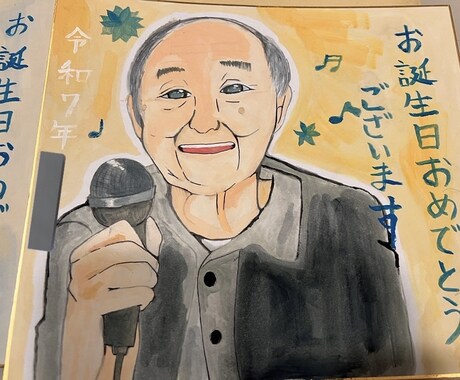 お誕生日おめでとう
ございます
令和7年
お誕生日おめで